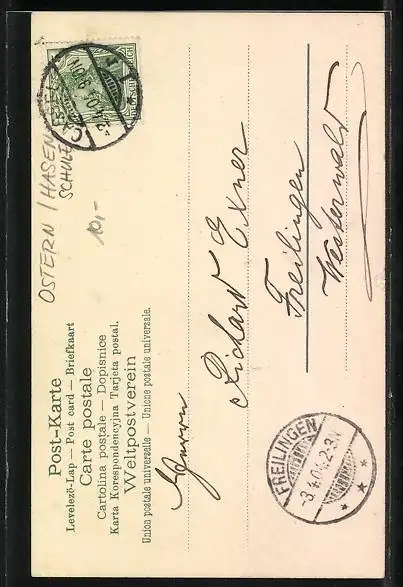 OSTERN / HASEN
SCHULE
10,-
Post-Karte
Levelező-Lap — Post card — Briefkaart
Carte postale
Cartolina postale — Dopisnice
Karta Korespondencyjna Tarjeta postal.
Weltpostverein
Union postale universelle — Unione postale universale.
Herrn
Richard Exner
Freilingen
Westerwald
FREILINGEN
-3.4.04.2-3N